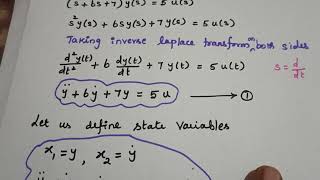 (s²+6s+7) y(s) = 5 u(s)
s²y(s) + 6s y(s) + 7 y(s) = 5 u(s)
Taking inverse laplace transform on both sides
d²y(t)/dt² + 6 dy(t)/dt + 7 y(t) = 5 u(t) s = d/dt
ÿ + 6ẏ + 7y = 5u → ①
Let us define state variables
x₁ = y, x₂ = ẏ